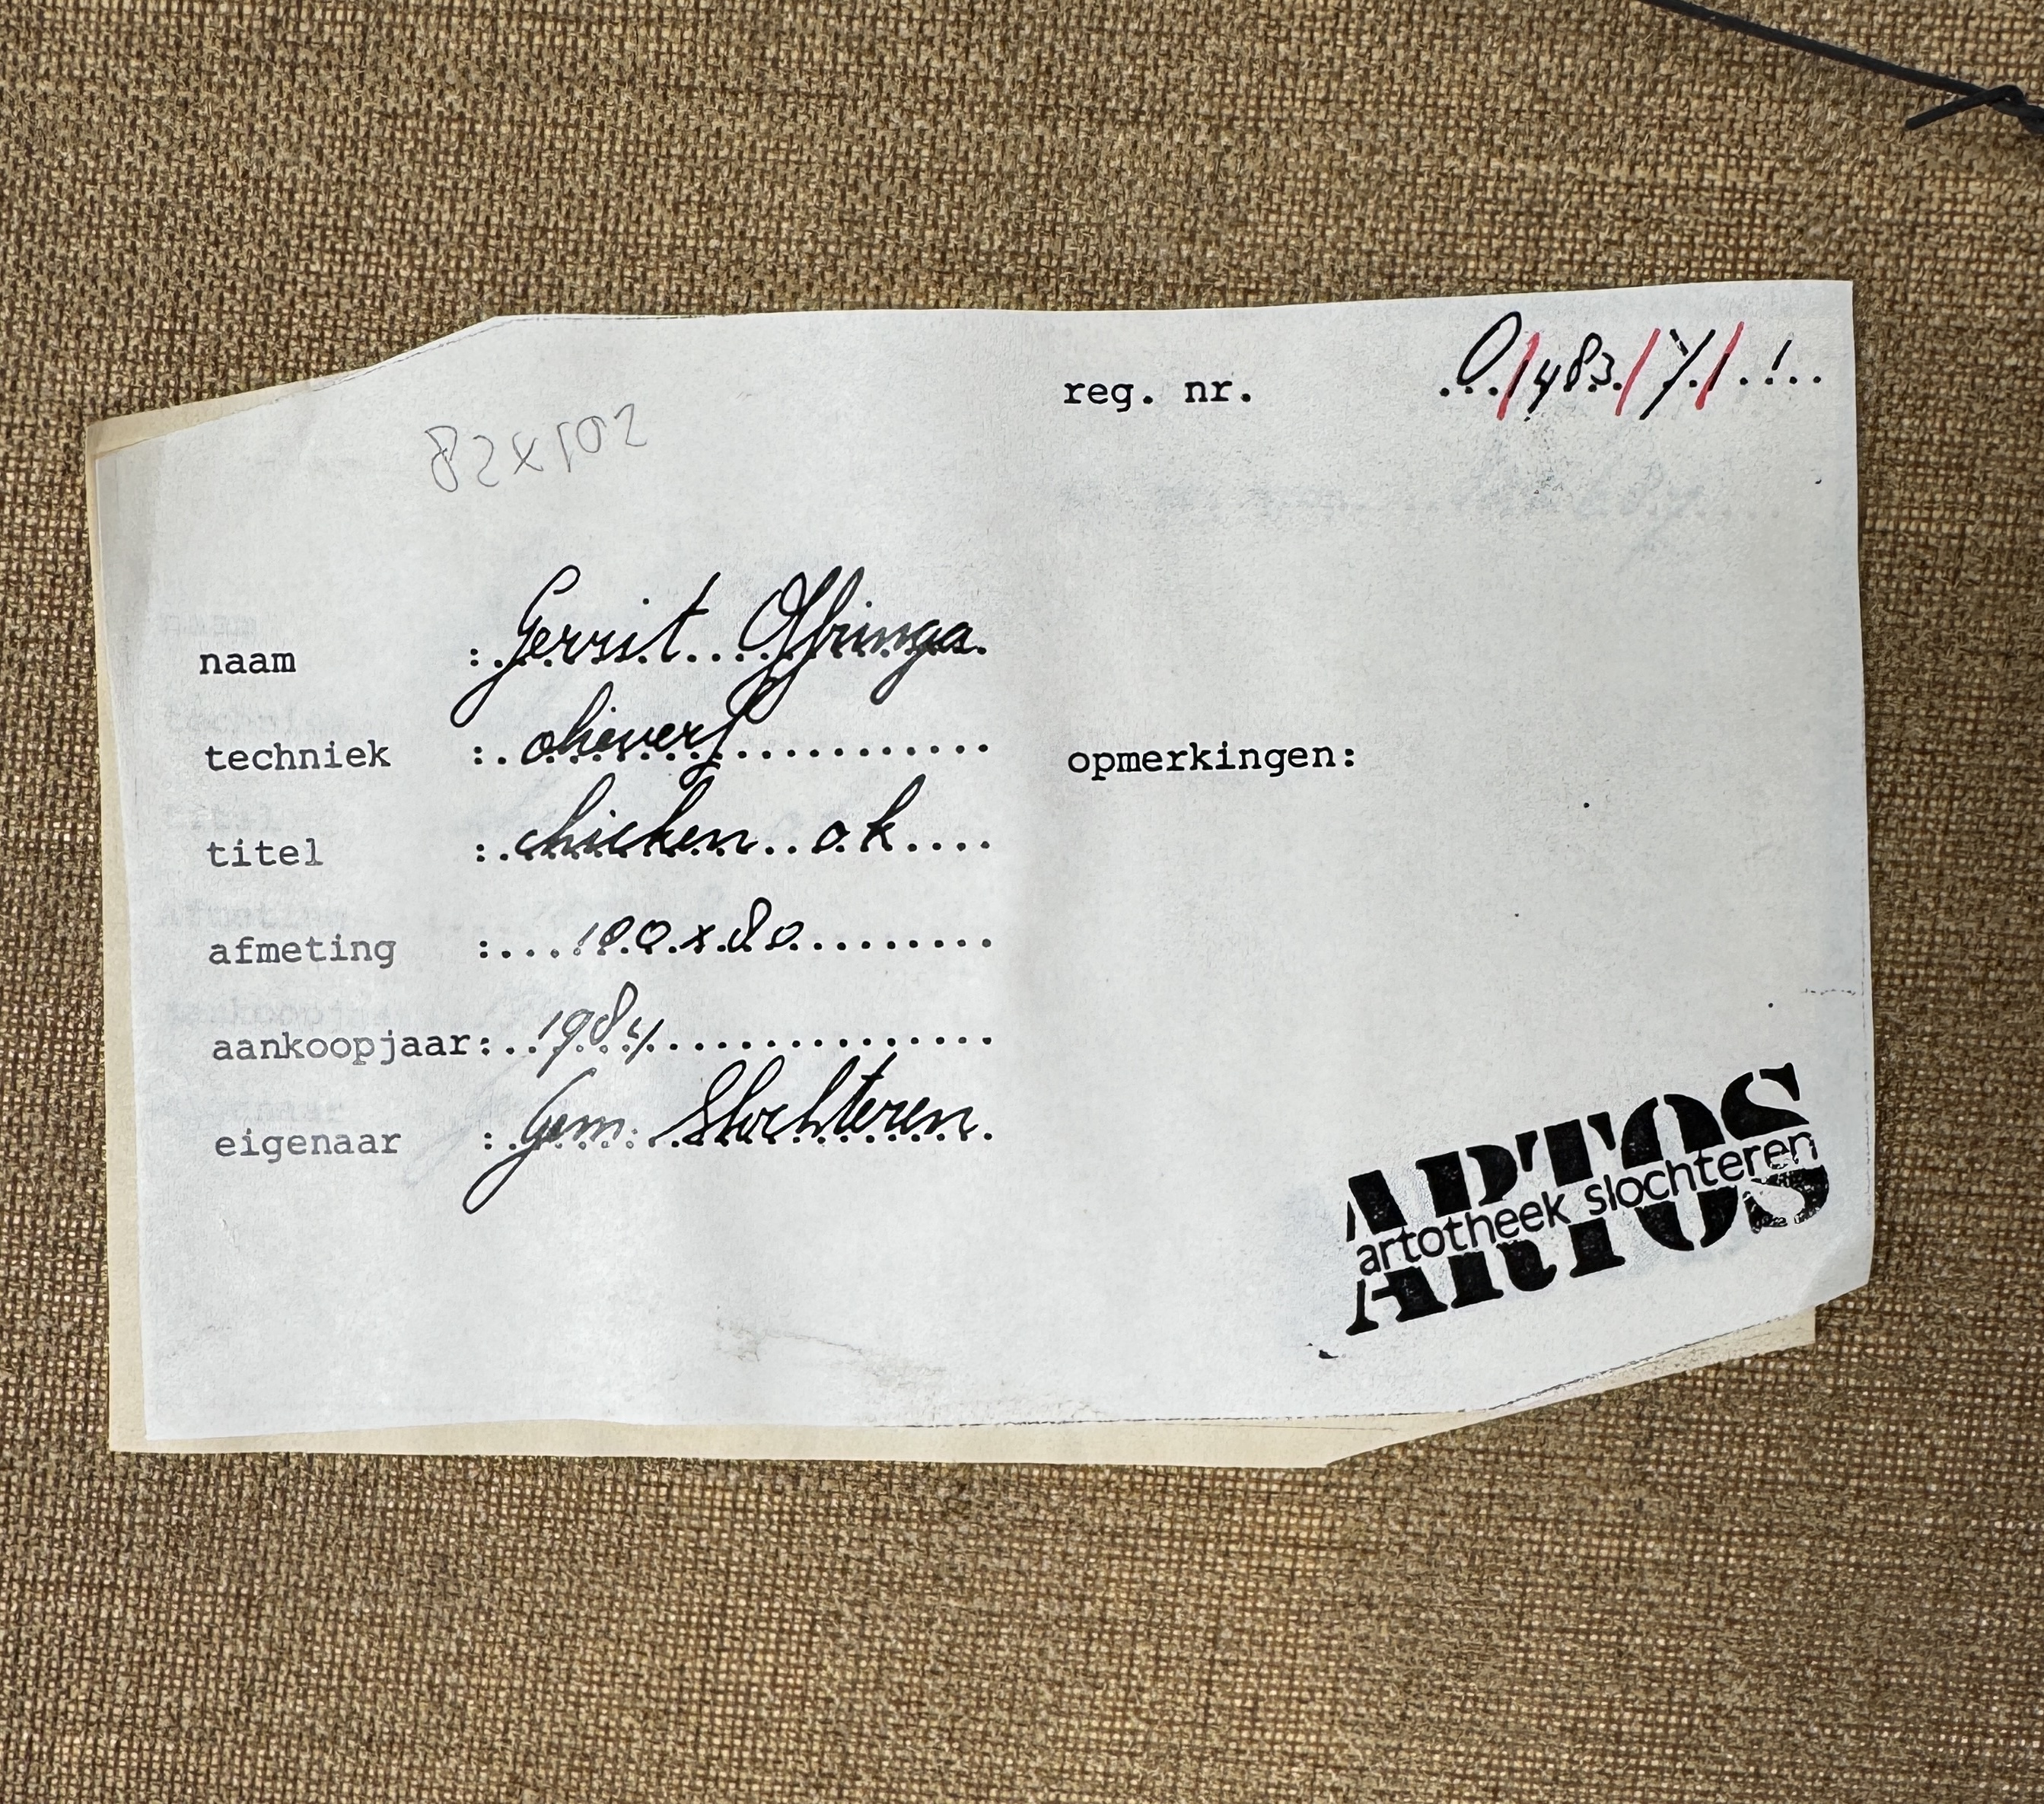 reg. nr. O/483/Y/1
82x102
naam : Gerrit Offringa
techniek : olieverf
titel : chicken ok
afmeting : 100 x 80
aankoopjaar: 1984
eigenaar : Gem. Slochteren
opmerkingen:
ARTOS
artotheek slochteren